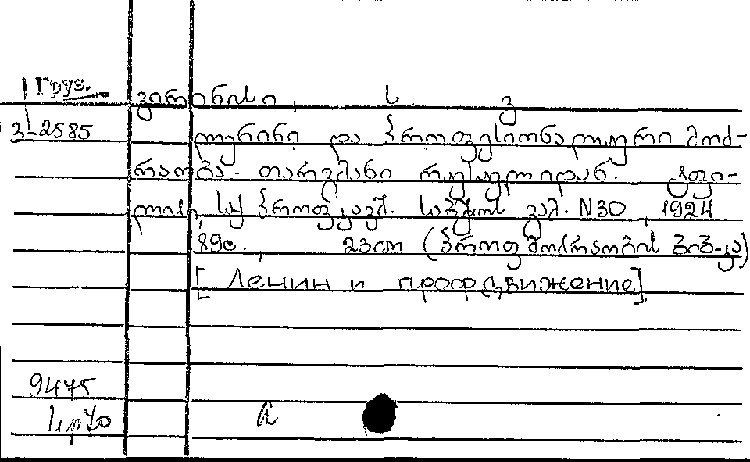 Груз.
გირინისი, ს. გ.
3-2585
ლენინი და პროფესიონალური მოძ-
რაობა. თარგმანი რუსულიდან. ტფი-
ლისი, საქ. პროფკავშ. საბჭოს გამ. N30, 1924
89გ., 23სთ (პროფმოძრაობის ბიბ-კა)
[Ленин и профдвижение]
9475